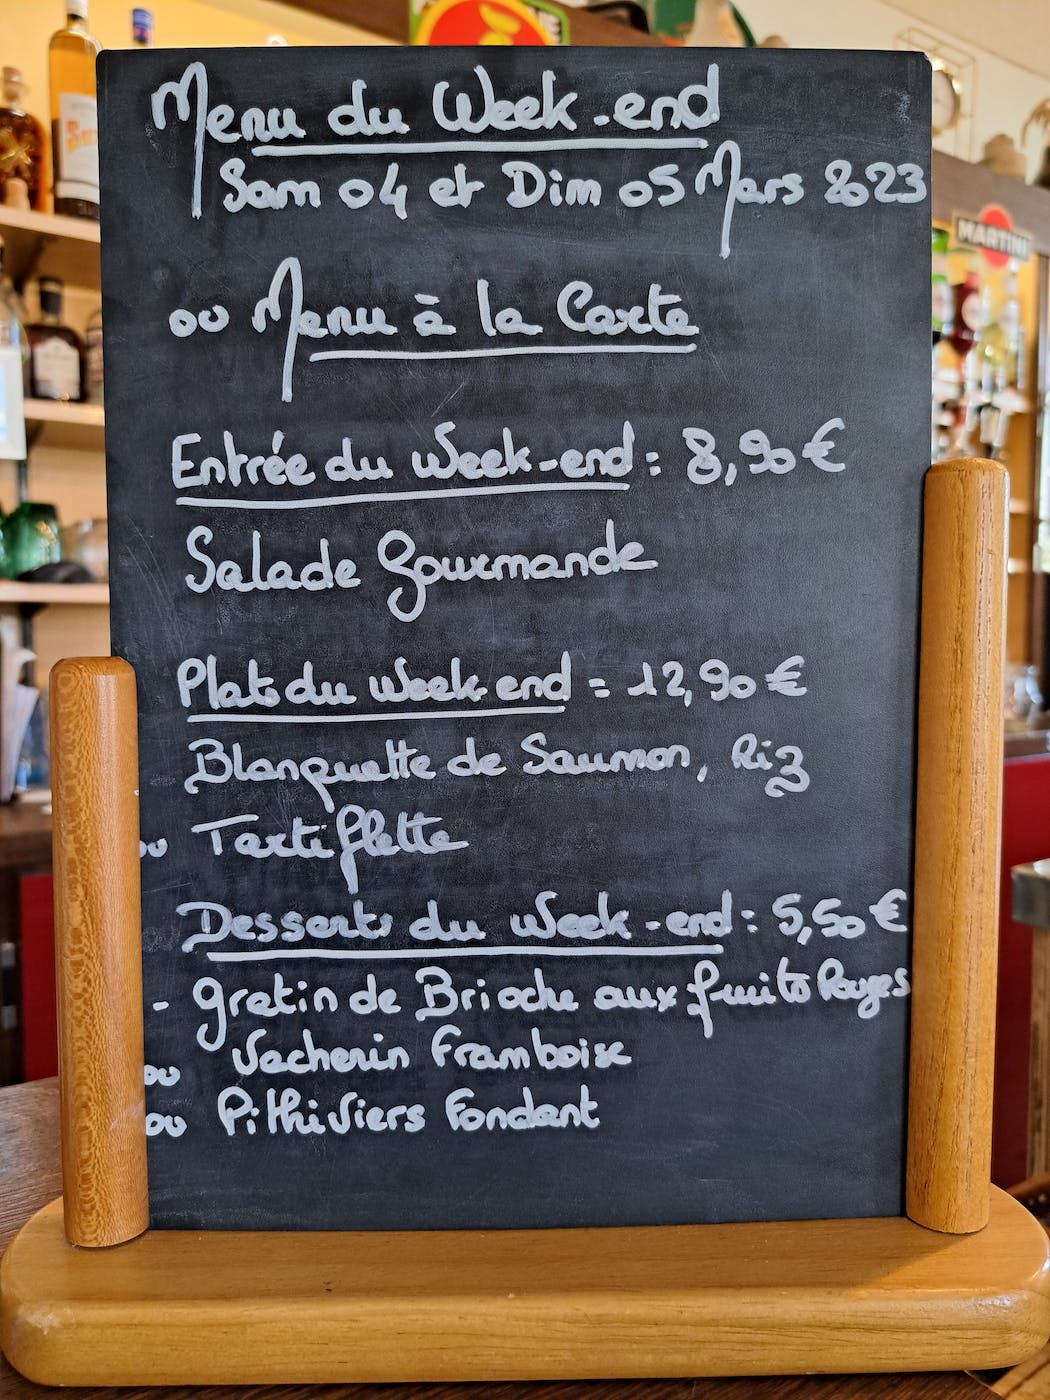 Menu du Week-end
Sam 04 et Dim 05 Mars 2023
ou Menu à la Carte
Entrée du Week-end : 8,90 €
Salade Gourmande
Plats du Week end = 12,90 €
Blanquette de Saumon, Riz
ou Tartiflette
Desserts du Week-end : 5,50 €
- gratin de Brioche aux fruits Rouges
ou Vacherin Framboise
ou Pithiviers Fondant
MARTINI